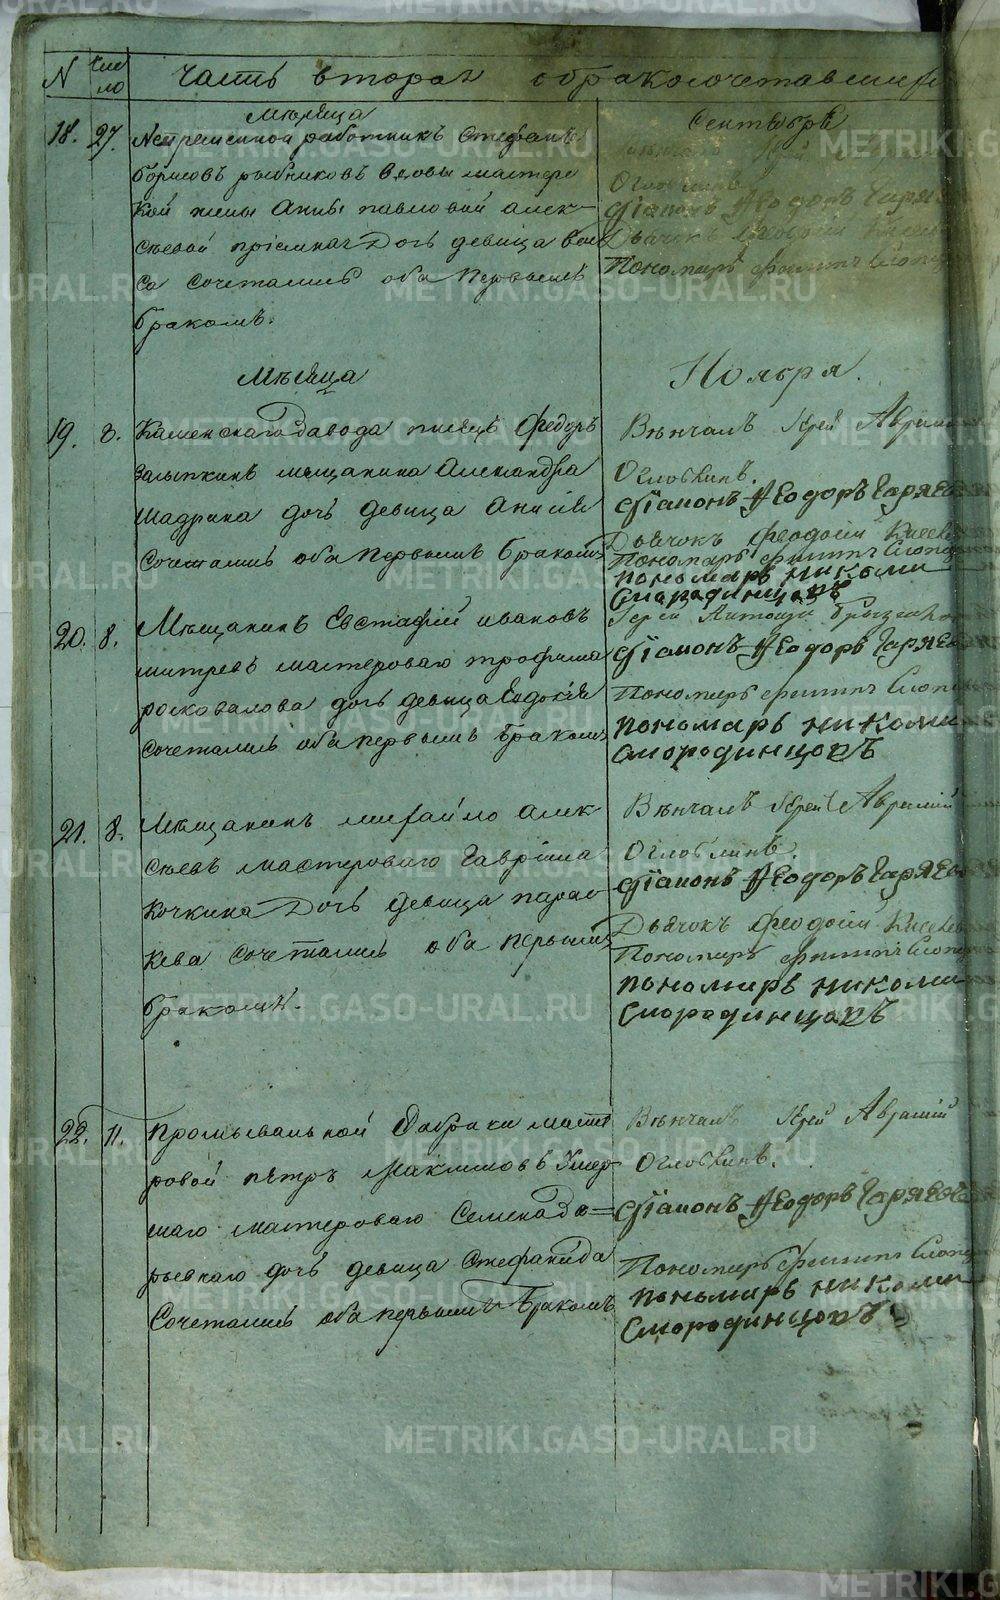 N Число Часть вторая о бракосочетавшихся
Месяца Сентября
18. 27. Непременной работникъ Стефанъ
Борисовъ рыбниковъ вдовы мастерс
кой жены Анны павловой алек-
сѣевой пріемная Дочь девица
Сочетались оба первымъ
бракомъ.
Оглоблинъ
Діаконъ Ѳеодоръ Гаряе
Дьячокъ
Пономарь филиппъ
Мѣсяца Ноября.
19. 8. Каменскаго Завода писецъ Федоръ
мещанина Александра
Шадрина дочь девица Анисія
Сочетались оба первымъ бракомъ
Вѣнчалъ Иерей Аврамій
Оглоблинъ.
діаконъ Ѳеодоръ Гаряевъ
Дьячокъ Феодосій Киселев
Пономарь филиппъ
пономарь николай
Смородинцовъ
20. 8. Мѣщанинъ Евстафій ивановъ
мастероваго трофима
дочь девица Евдокія
сочетались оба первымъ бракомъ
Іерей Антоній
діаконъ Ѳеодоръ Гаряев
Пономарь филиппъ
пономарь николай
Смородинцовъ
21. 8. Мещанинъ михайло алек
сѣевъ мастероваго Гавріила
Кочкина Дочь девица парас
кева сочетались оба первымъ
бракомъ.
Вѣнчалъ Иерей Аврамій
Оглоблинъ.
діаконъ Ѳеодоръ Гаряев
Дьячокъ феодосій Киселев
Пономарь филиппъ
пономарь николай
Смородинцовъ
22. 11. Промывальной Фабрики масте
ровой пётръ Максимовъ Умер
шаго мастероваго Семена
дочь девица Стефанида
Сочетались оба первымъ бракомъ
Вѣнчалъ Иерей Аврамій
Оглоблинъ.
діаконъ Ѳеодоръ Гаряевъ
Пономарь филиппъ
пономарь николай
Смородинцовъ
METRIKI.GASO-URAL.RU